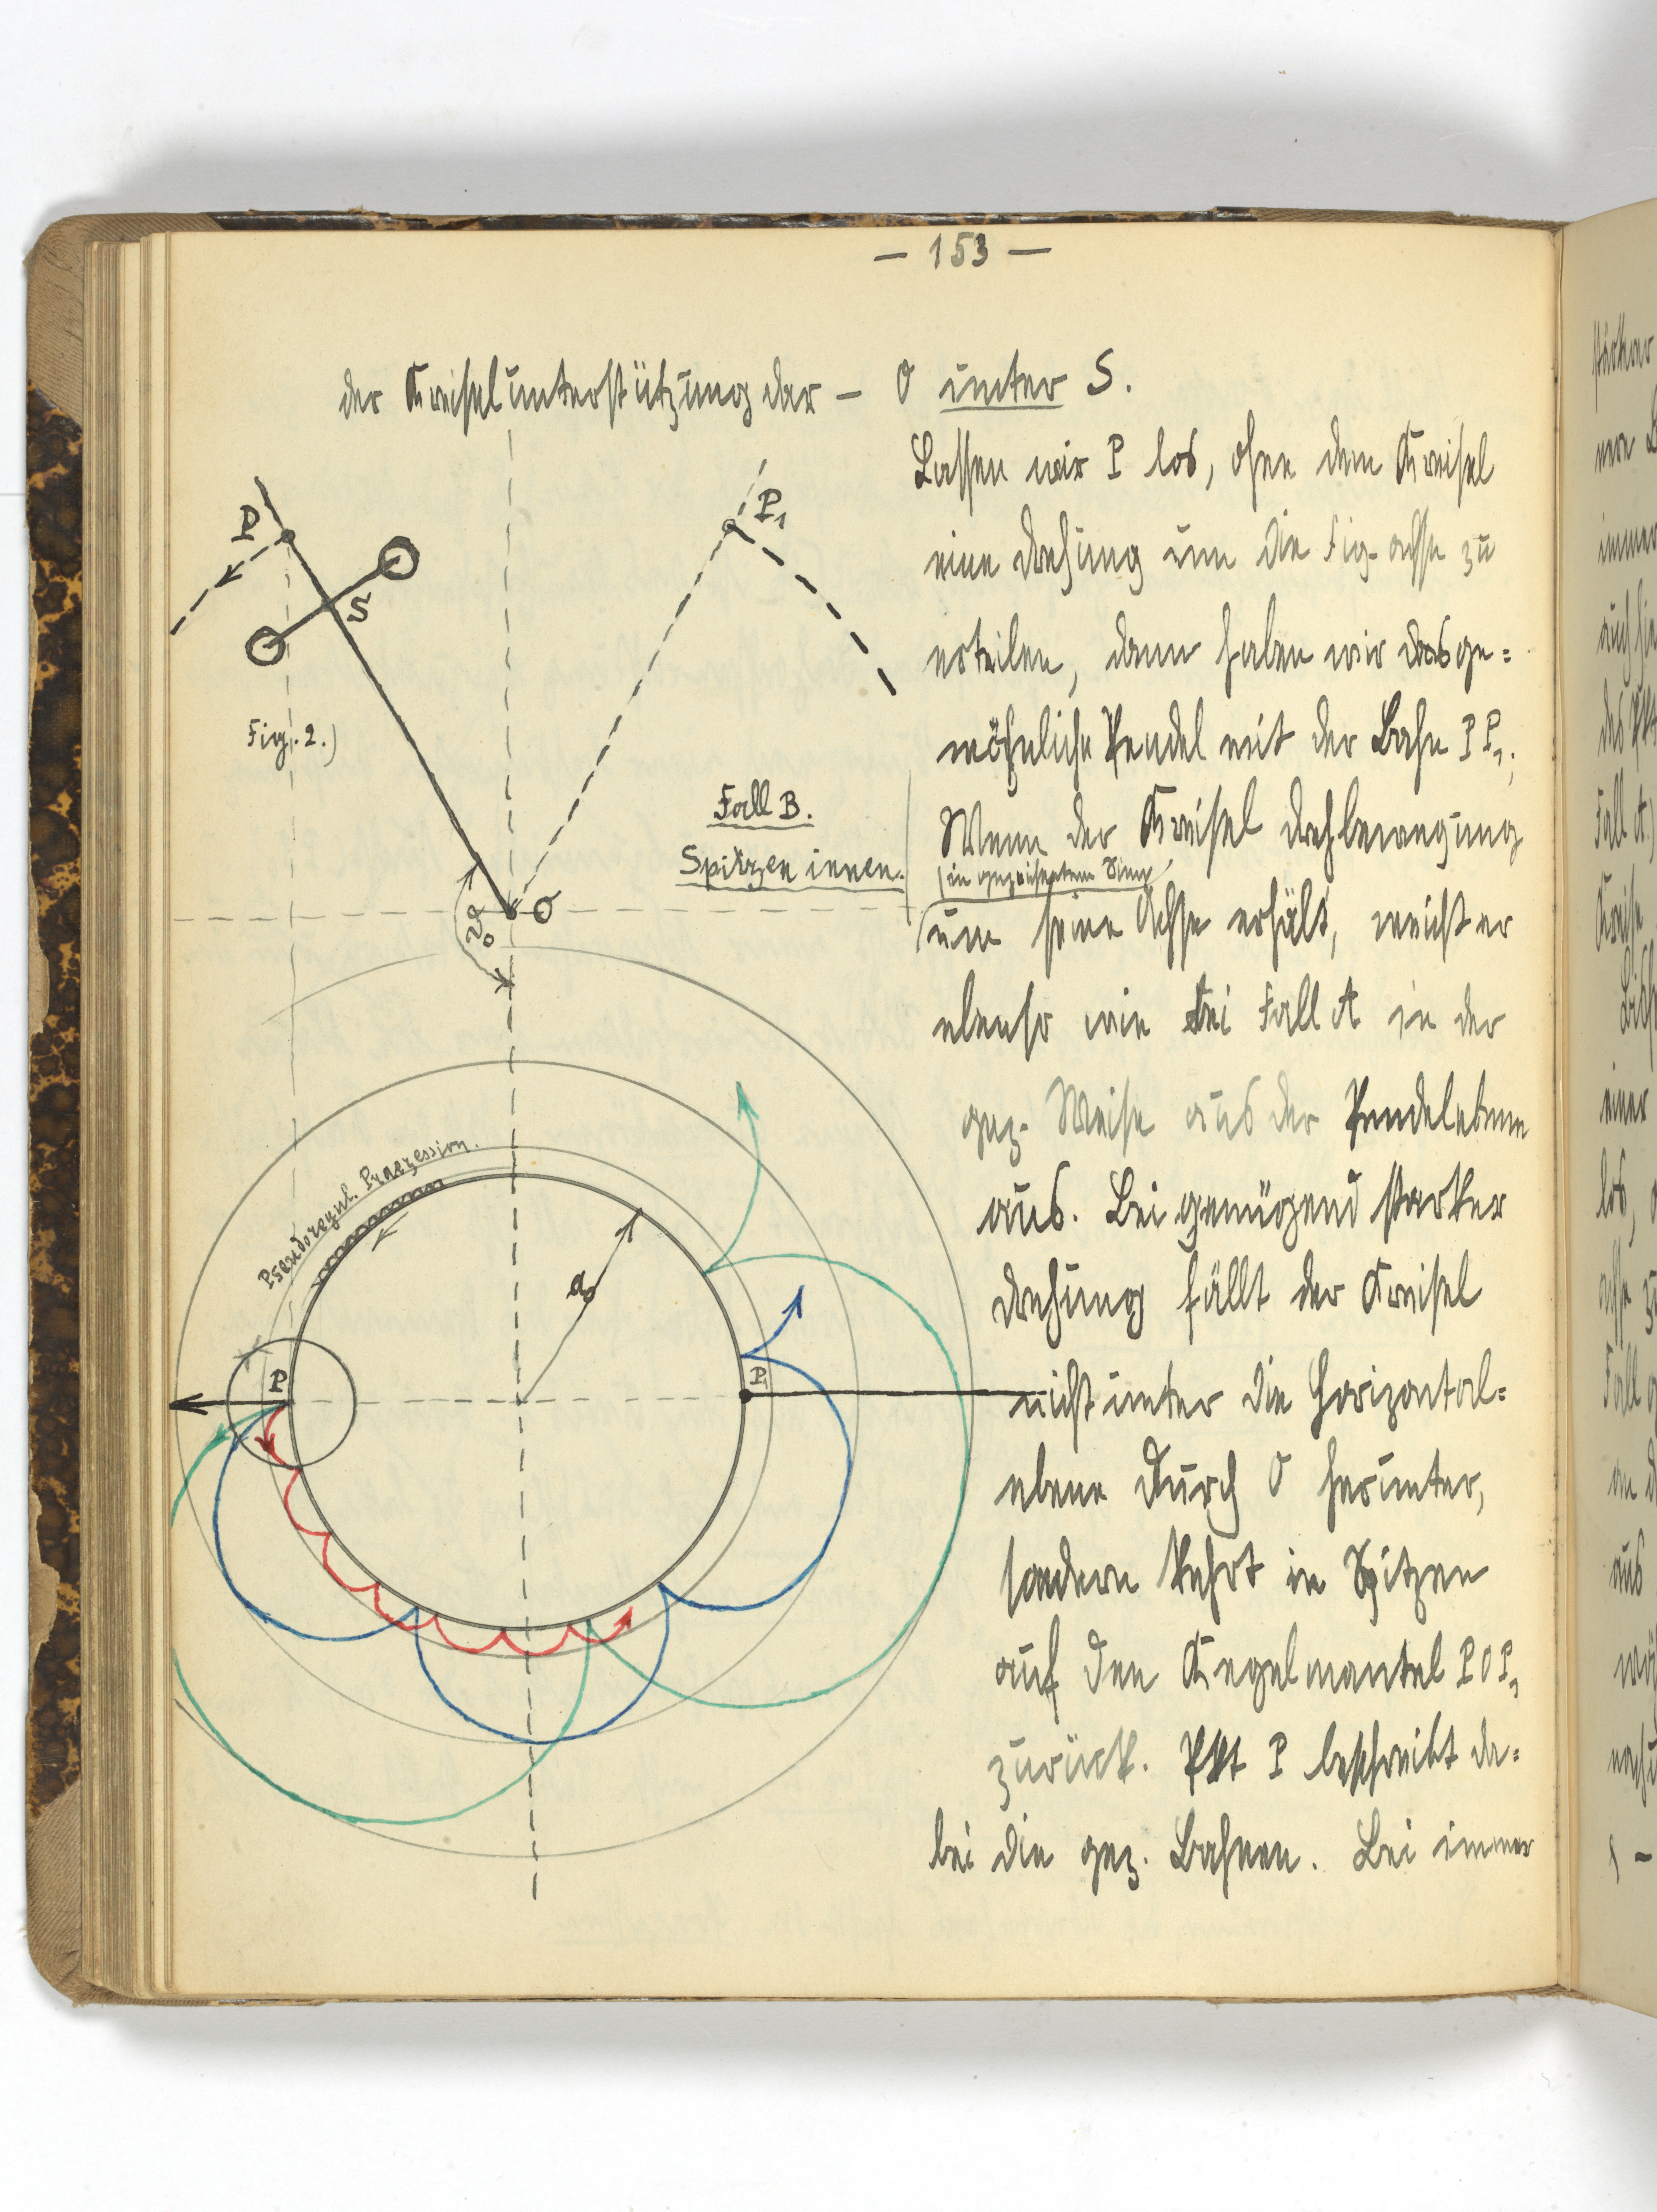 — 153 —
der Kreiselunterstützung dar — O unter S.
Lassen wir P los, ohne dem Kreisel
eine Drehung um die Fig. achse zu
erteilen, dann haben wir das ge=
wöhnliche Pendel mit der Bahn P P₁.
Wenn der Kreisel Drehbewegung
(in gezeichnetem Sinn)
um seine Achse erhält, weicht er
ebenso wie bei Fall A in der
gez. Weise aus der Pendelebene
aus. Bei genügend starker
Drehung fällt der Kreisel
nicht unter die Horizontal=
ebene durch O herunter,
sondern kehrt in Spitzen
auf den Kegelmantel P O P₁
zurück. Pkt P beschreibt da=
bei die gez. Bahnen. Bei immer
P
P₁
S
Fig. 2.)
Fall B.
Spitzen innen.
O
ϑ₀
Pseudoregul. Praezession.
a₀
P
P₁